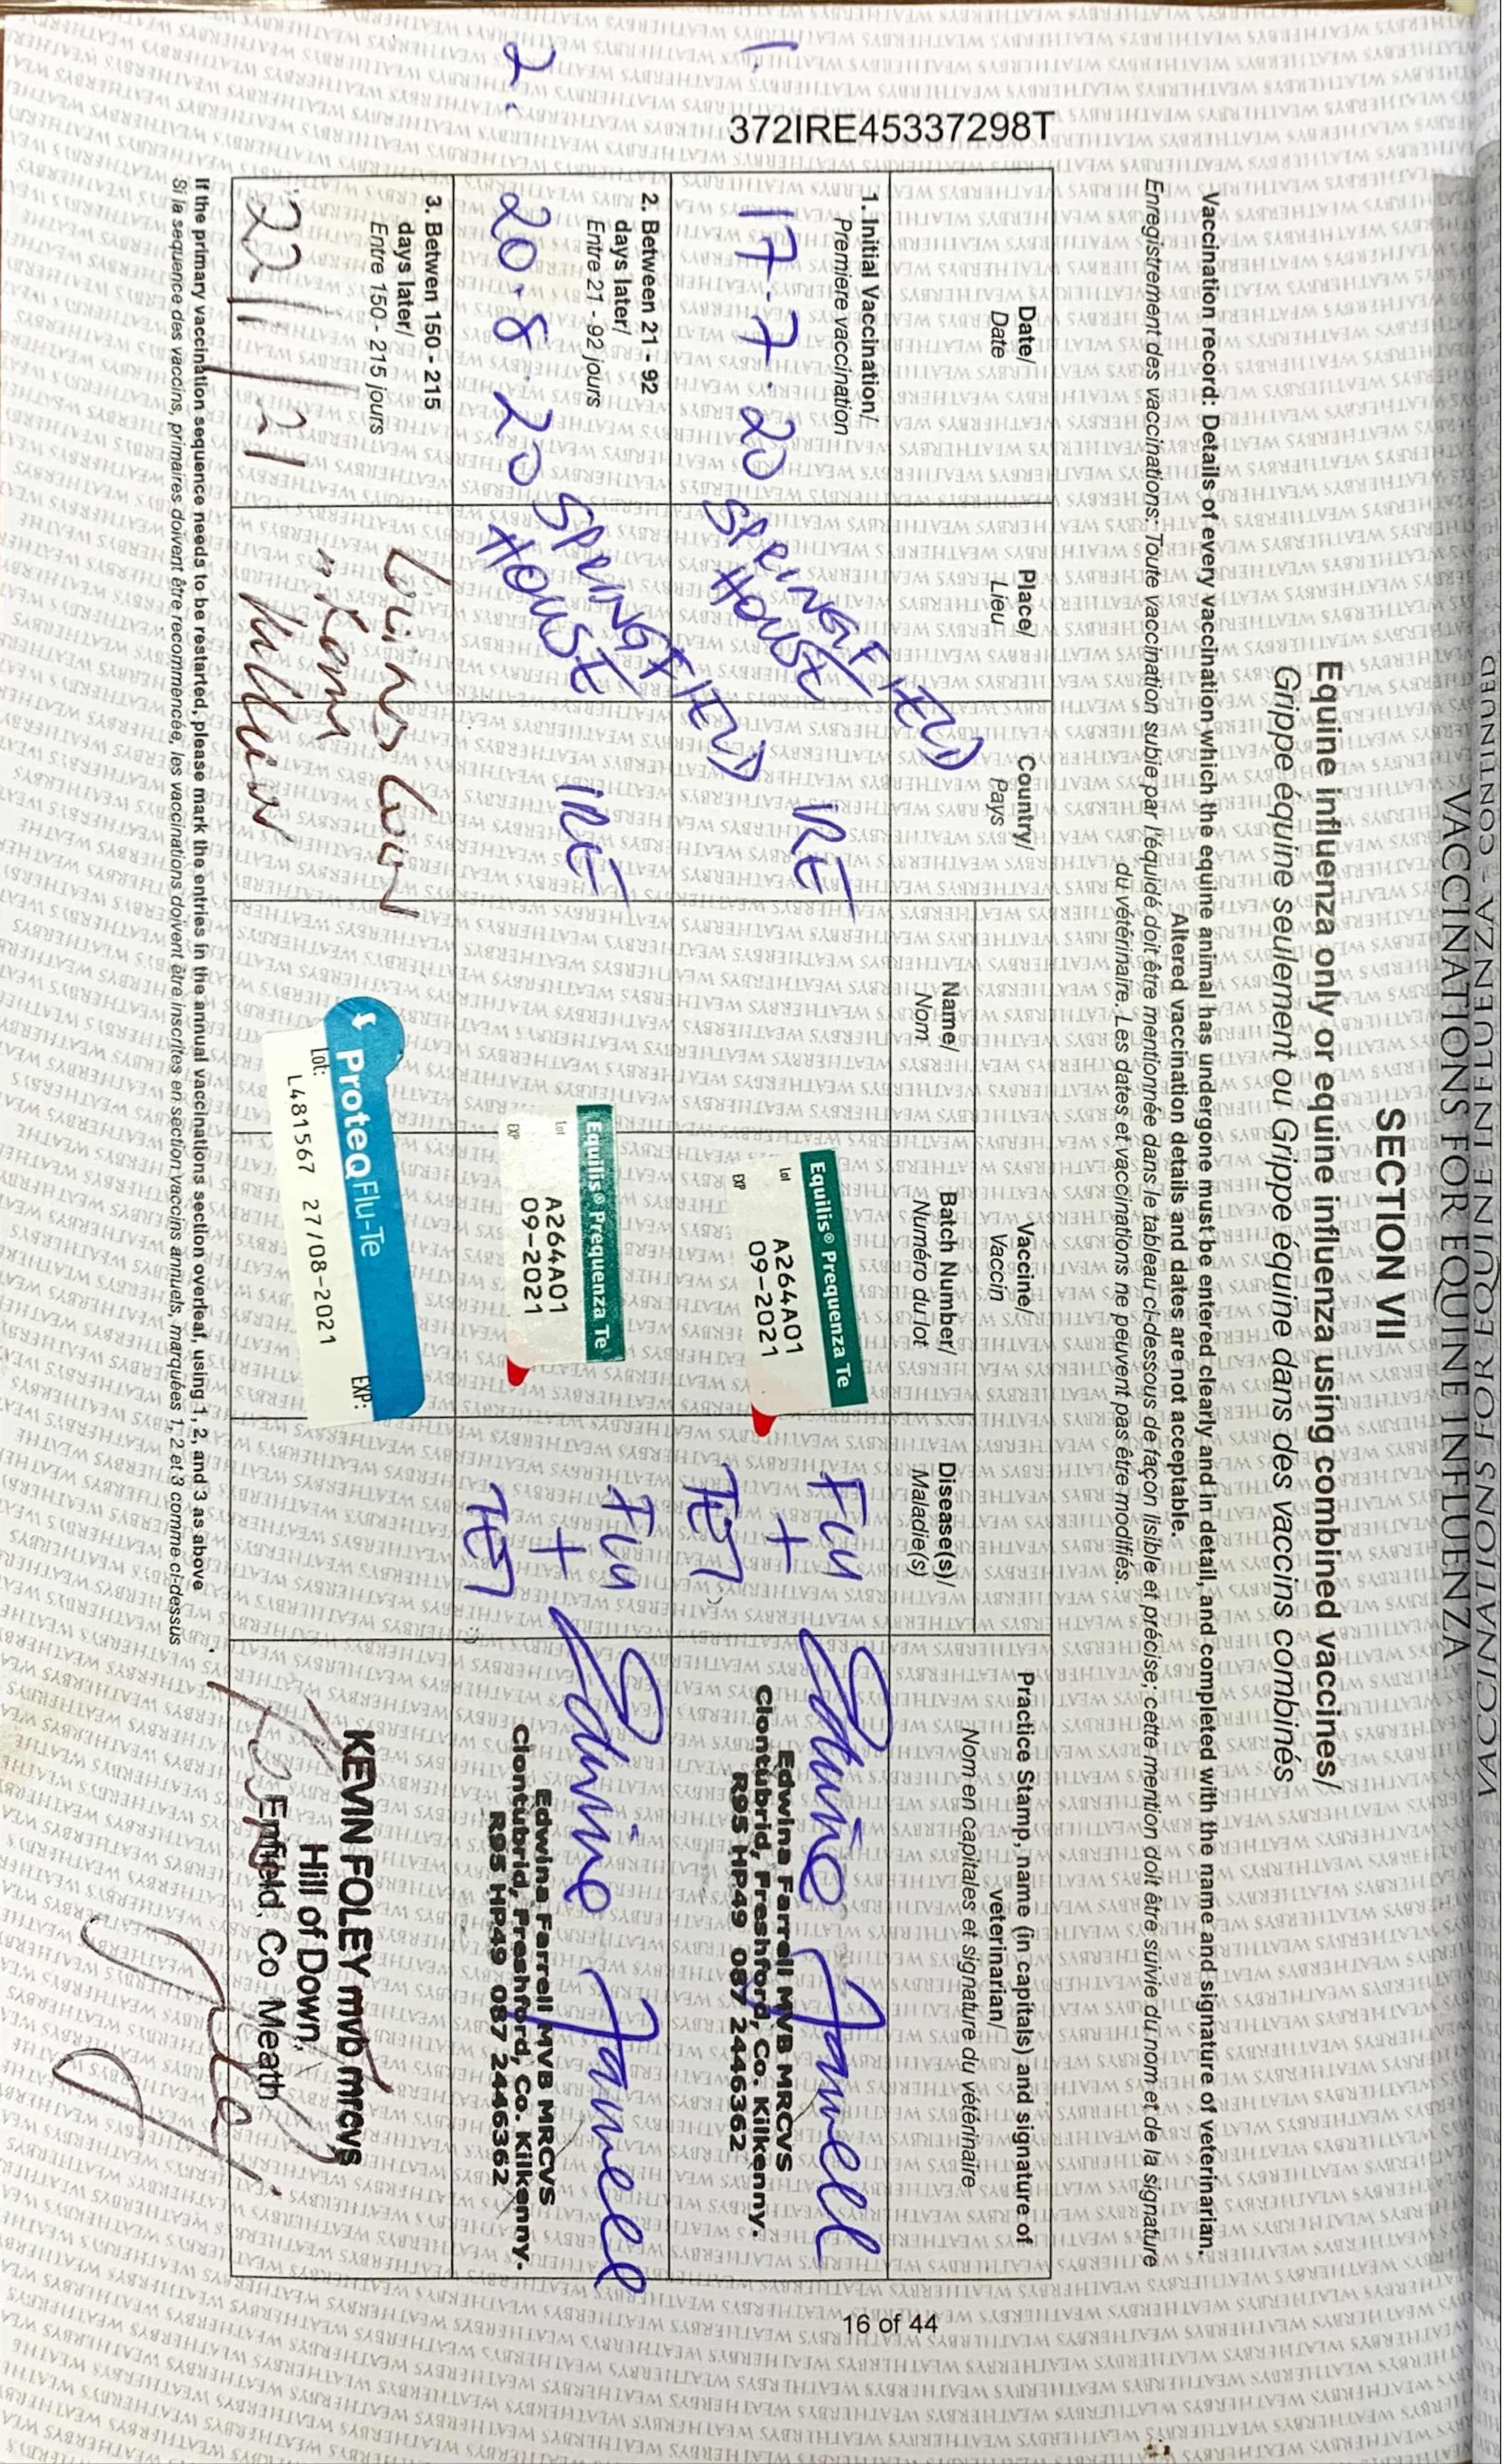 372IRE45337298T
VACCINATIONS FOR EQUINE INFLUENZA - CONTINUED
VACCINATIONS FOR EQUINE INFLUENZA
SECTION VII
Equine influenza only or equine influenza using combined vaccines/
Grippe équine seulement ou Grippe équine dans des vaccins combinés
Vaccination record: Details of every vaccination which the equine animal has undergone must be entered clearly and in detail, and completed with the name and signature of veterinarian.
Altered vaccination details and dates are not acceptable.
Enregistrement des vaccinations: Toute vaccination subie par l'équidé doit être mentionnée dans le tableau ci-dessous de façon lisible et précise; cette mention doit être suivie du nom et de la signature
du vétérinaire. Les dates et vaccinations ne peuvent pas être modifiés.
Date/
Date
Place/
Lieu
Country/
Pays
Vaccine/
Vaccin
Name/
Nom
Batch Number/
Numéro du lot
Disease(s)/
Maladie(s)
Practice Stamp, name (in capitals) and signature of
veterinarian/
Nom en capitales et signature du vétérinaire
1. Initial Vaccination/
Premiere vaccination
1.
17.7.20
SPRINGFIELD
HOUSE
IRE
Equilis® Prequenza Te
Lot A264A01
EXP 09-2021
Flu
+
TET
Edwina Farrell
Edwina Farrell MVB MRCVS
Clontubrid, Freshford, Co. Kilkenny.
R95 HP49 087 2446362
2. Between 21 - 92
days later/
Entre 21 - 92 jours
2.
20.8.20
SPRINGFIELD
HOUSE
IRE
Equilis® Prequenza Te
Lot A264A01
EXP 09-2021
Flu
+
TET
Edwina Farrell
Edwina Farrell MVB MRCVS
Clontubrid, Freshford, Co. Kilkenny.
R95 HP49 087 2446362
3. Betwen 150 - 215
days later/
Entre 150 - 215 jours
22/1/21
ProteqFlu-Te
Lot: EXP:
L481567 27/08-2021
KEVIN FOLEY mvb mrcvs
Hill of Down,
Enfield, Co Meath
If the primary vaccination sequence needs to be restarted, please mark the entries in the annual vaccinations section overleaf, using 1, 2, and 3 as above
Si la sequence des vaccins, primaires doivent être recommencée, les vaccinations doivent être inscrites en section vaccins annuels, marquées 1, 2 et 3 comme ci-dessus
16 of 44